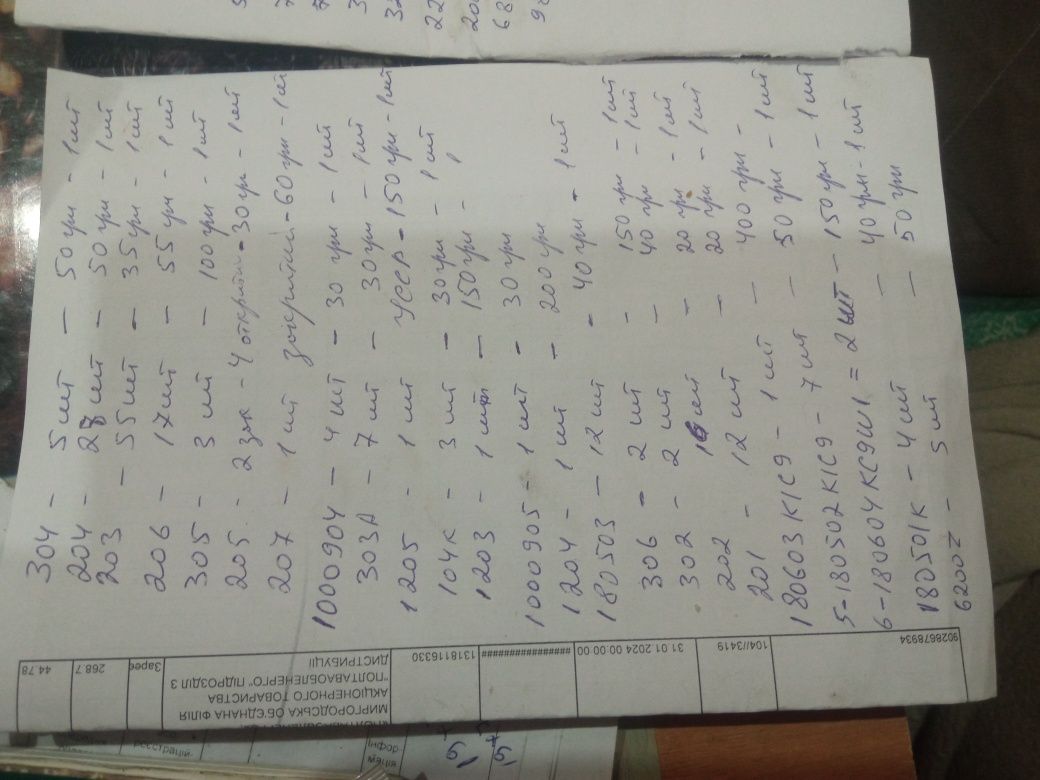 304 - 5 шт - 50 грн - 1 шт
204 - 28 шт - 50 грн - 1 шт
203 - 55 шт - 35 грн - 1 шт
206 - 17 шт - 55 грн - 1 шт
305 - 3 шт - 100 грн - 1 шт
205 - 2 зак - 4 откриті - 30 грн - 1 шт
207 - 1 шт закритий - 60 грн - 1 шт
1000904 - 4 шт - 30 грн - 1 шт
303А - 7 шт - 30 грн - 1 шт
1205 - 1 шт УССР - 150 грн - 1 шт
104К - 3 шт - 30 грн - 1 шт
1203 - 1 шт - 150 грн - 1
1000905 - 1 шт - 30 грн
1204 - 1 шт - 200 грн
180503 - 12 шт - 40 грн - 1 шт
306 - 2 шт - 150 грн - 1 шт
302 - 2 шт - 40 грн - 1 шт
202 16 шт - 20 грн - 1 шт
201 - 12 шт - 20 грн - 1 шт
180603К1С9 - 1 шт - 400 грн -
5-180502К1С9 - 7 шт - 50 грн - 1 шт
6-180604КС9Ш1 = 2 шт - 150 грн - 1 шт
180501К - 4 шт - 40 грн - 1 шт
6200Z - 5 шт - 50 грн
44.78
268.7
Зареє
МИРГОРОДСЬКА ОБ'ЄДНАНА ФІЛІЯ
АКЦІОНЕРНОГО ТОВАРИСТВА
"ПОЛТАВАОБЛЕНЕРГО" ПІДРОЗДІЛ З
ДИСТРИБУЦІЇ
1318116330
##################
31.01.2024 00:00:00
104//3419
9028678934